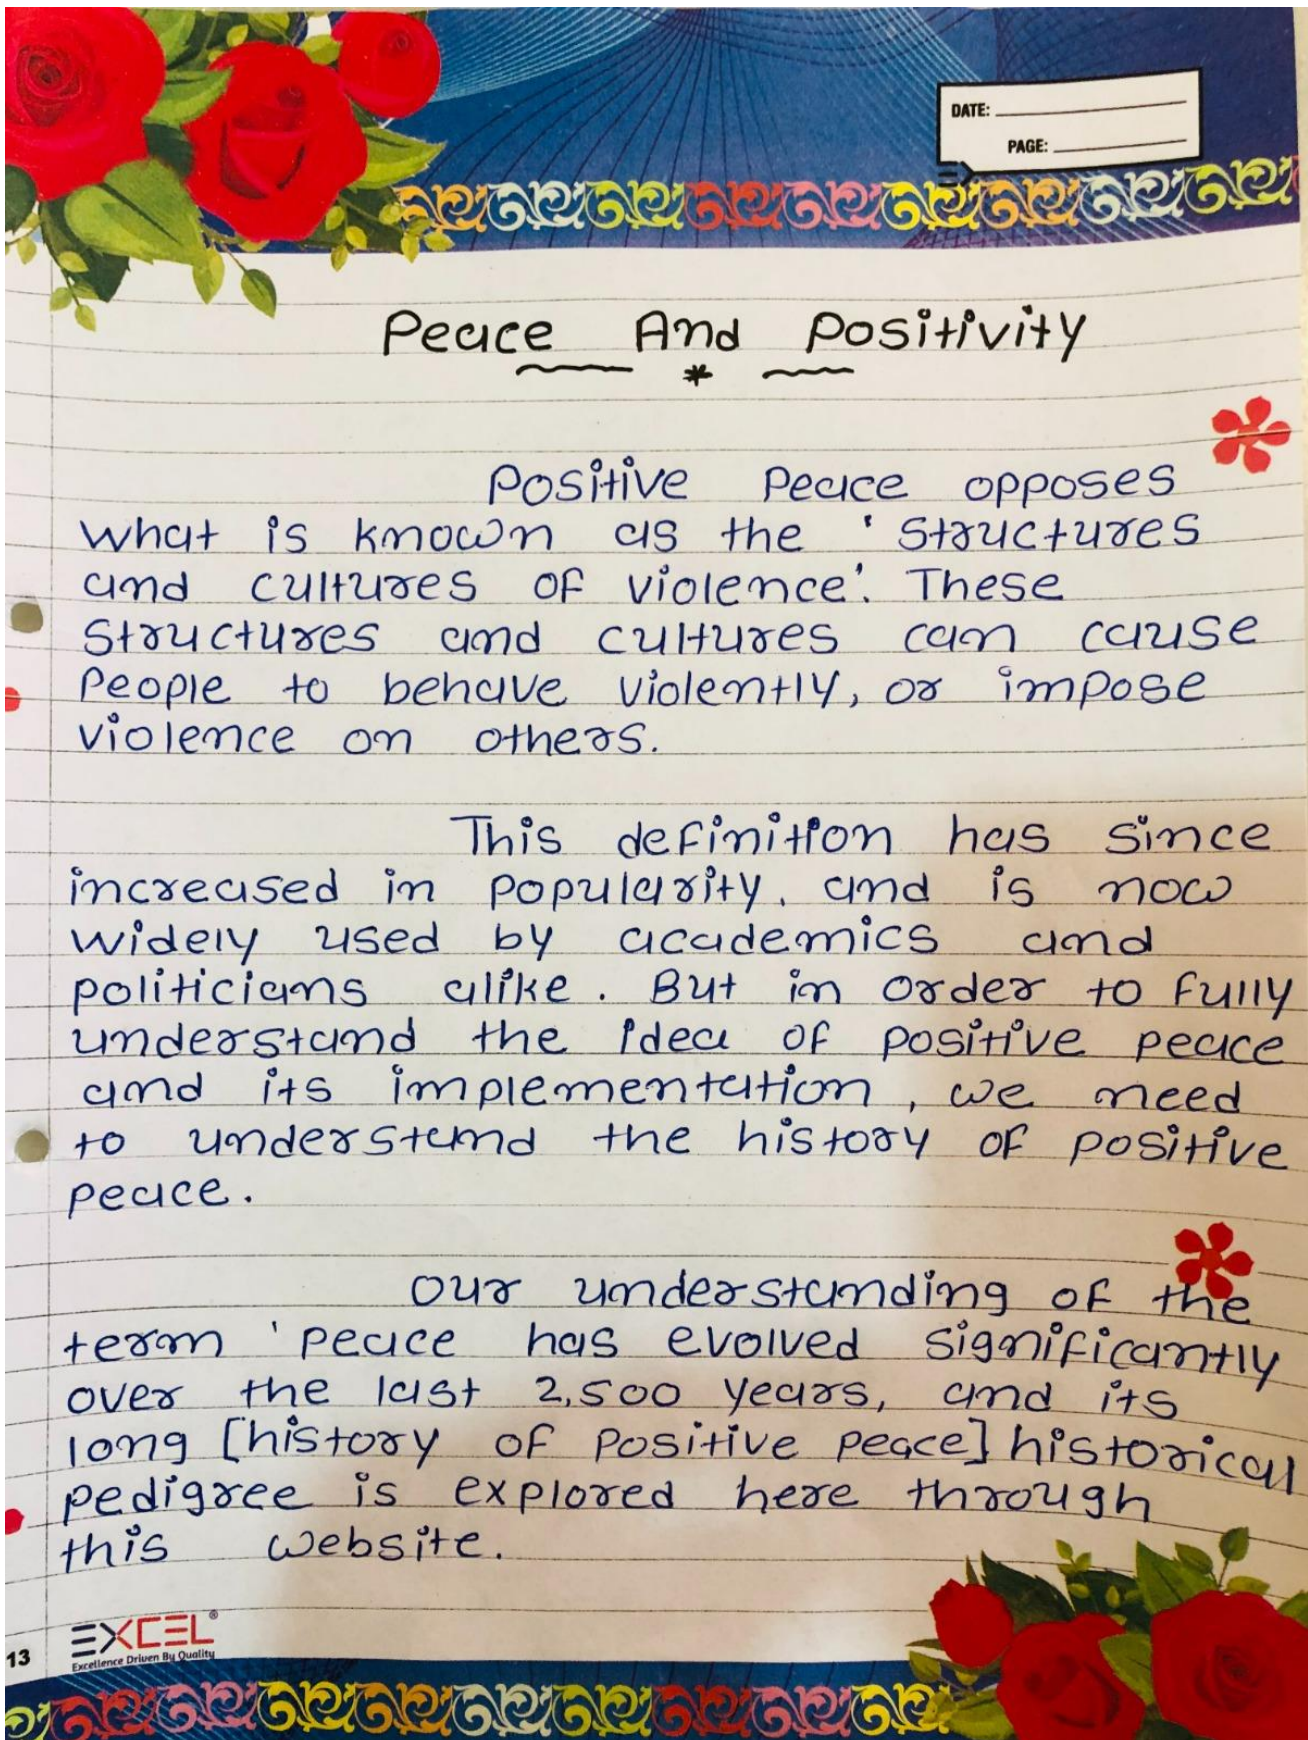 DATE:
PAGE:
Peace And Positivity
*
Positive Peace opposes
what is known as the 'structures
and cultures of violence'. These
structures and cultures can cause
people to behave violently, or impose
violence on others.
This definition has since
increased in popularity, and is now
widely used by academics and
politicians alike. But in order to fully
understand the idea of positive peace
and its implementation, we need
to understand the history of positive
peace.
Our understanding of the
term 'peace has evolved significantly
over the last 2,500 years, and its
long [history of positive peace] historical
pedigree is explored here through
this website.
EXCEL®
Excellence Driven By Quality
13